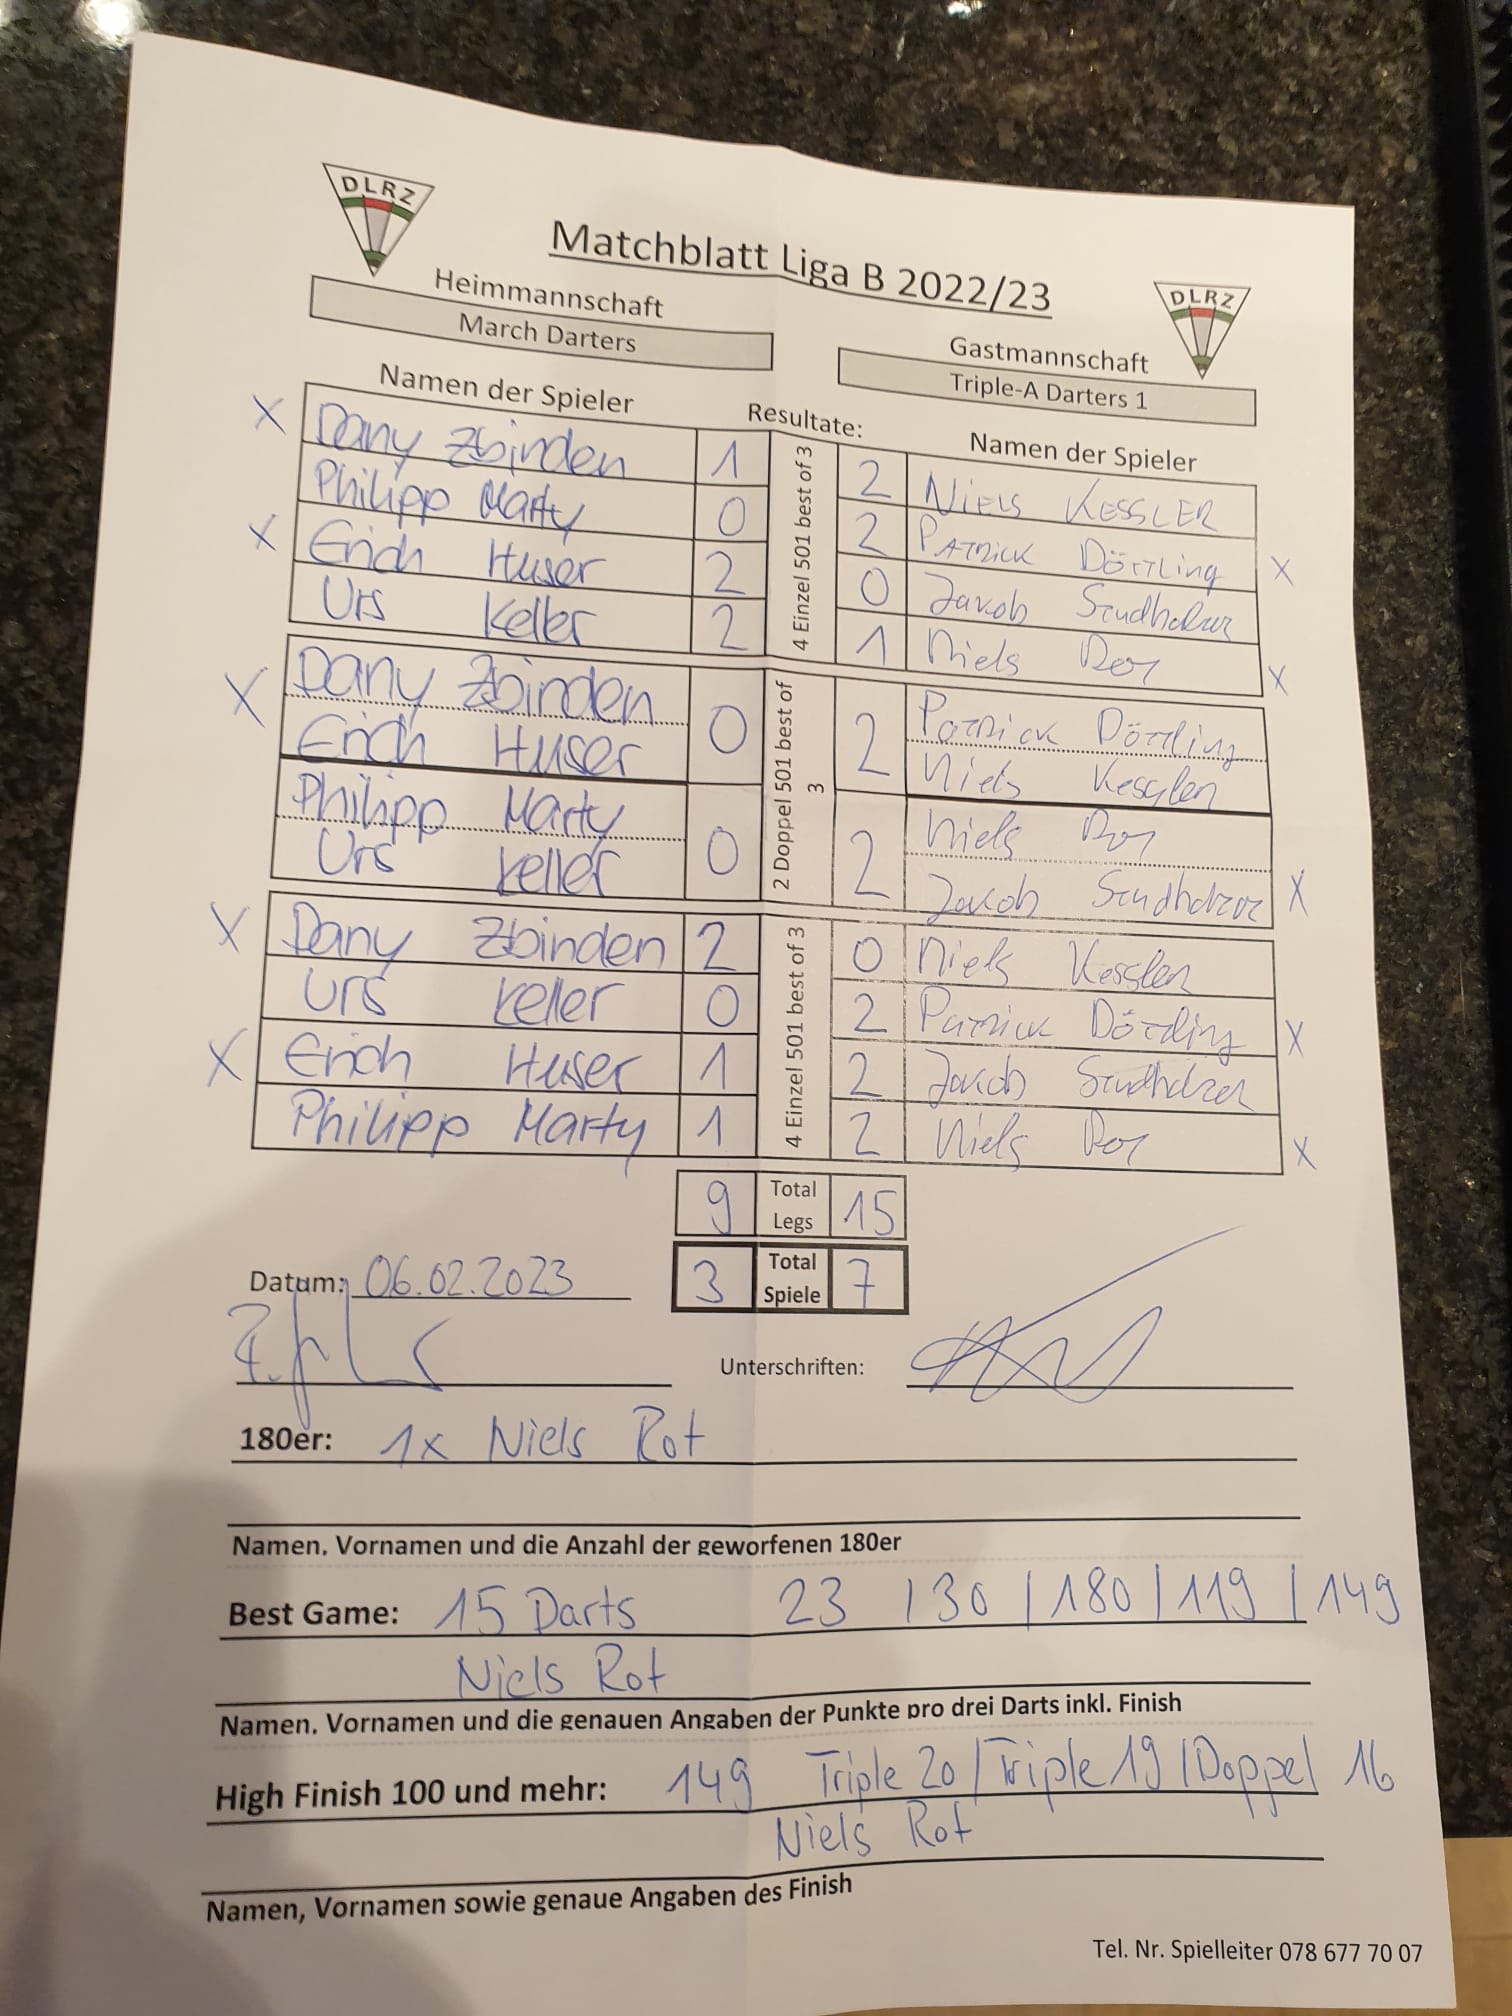 DLRZ
Matchblatt Liga B 2022/23
DLRZ
Heimmannschaft
March Darters
Gastmannschaft
Triple-A Darters 1
Namen der Spieler
Resultate:
Namen der Spieler
X Dany Zbinden 1 2 NIELS KESSLER
Philipp Marty 0 2 PATRICK Dörtling X
X Erich Huser 2 0 Jakob Studholzer
Urs Keller 2 1 Niels Rot X
4 Einzel 501 best of 3
X Dany Zbinden 0 2 Patrick Dörtling
Erich Huser Niels Kessler
Philipp Marty 0 2 Niels Rot
Urs Keller Jakob Studholzer X
2 Doppel 501 best of 3
X Dany Zbinden 2 0 Niels Kessler
Urs Keller 0 2 Patrick Dörtling X
X Erich Huser 1 2 Jakob Studholzer
Philipp Marty 1 2 Niels Rot X
4 Einzel 501 best of 3
9 Total Legs 15
Datum: 06.02.2023
3 Total Spiele 7
Unterschriften:
180er: 1x Niels Rot
Namen, Vornamen und die Anzahl der geworfenen 180er
Best Game: 15 Darts 23 | 30 | 180 | 119 | 149
Niels Rot
Namen, Vornamen und die genauen Angaben der Punkte pro drei Darts inkl. Finish
High Finish 100 und mehr: 149 Triple 20 / Triple 19 / Doppel 16
Niels Rot
Namen, Vornamen sowie genaue Angaben des Finish
Tel. Nr. Spielleiter 078 677 70 07